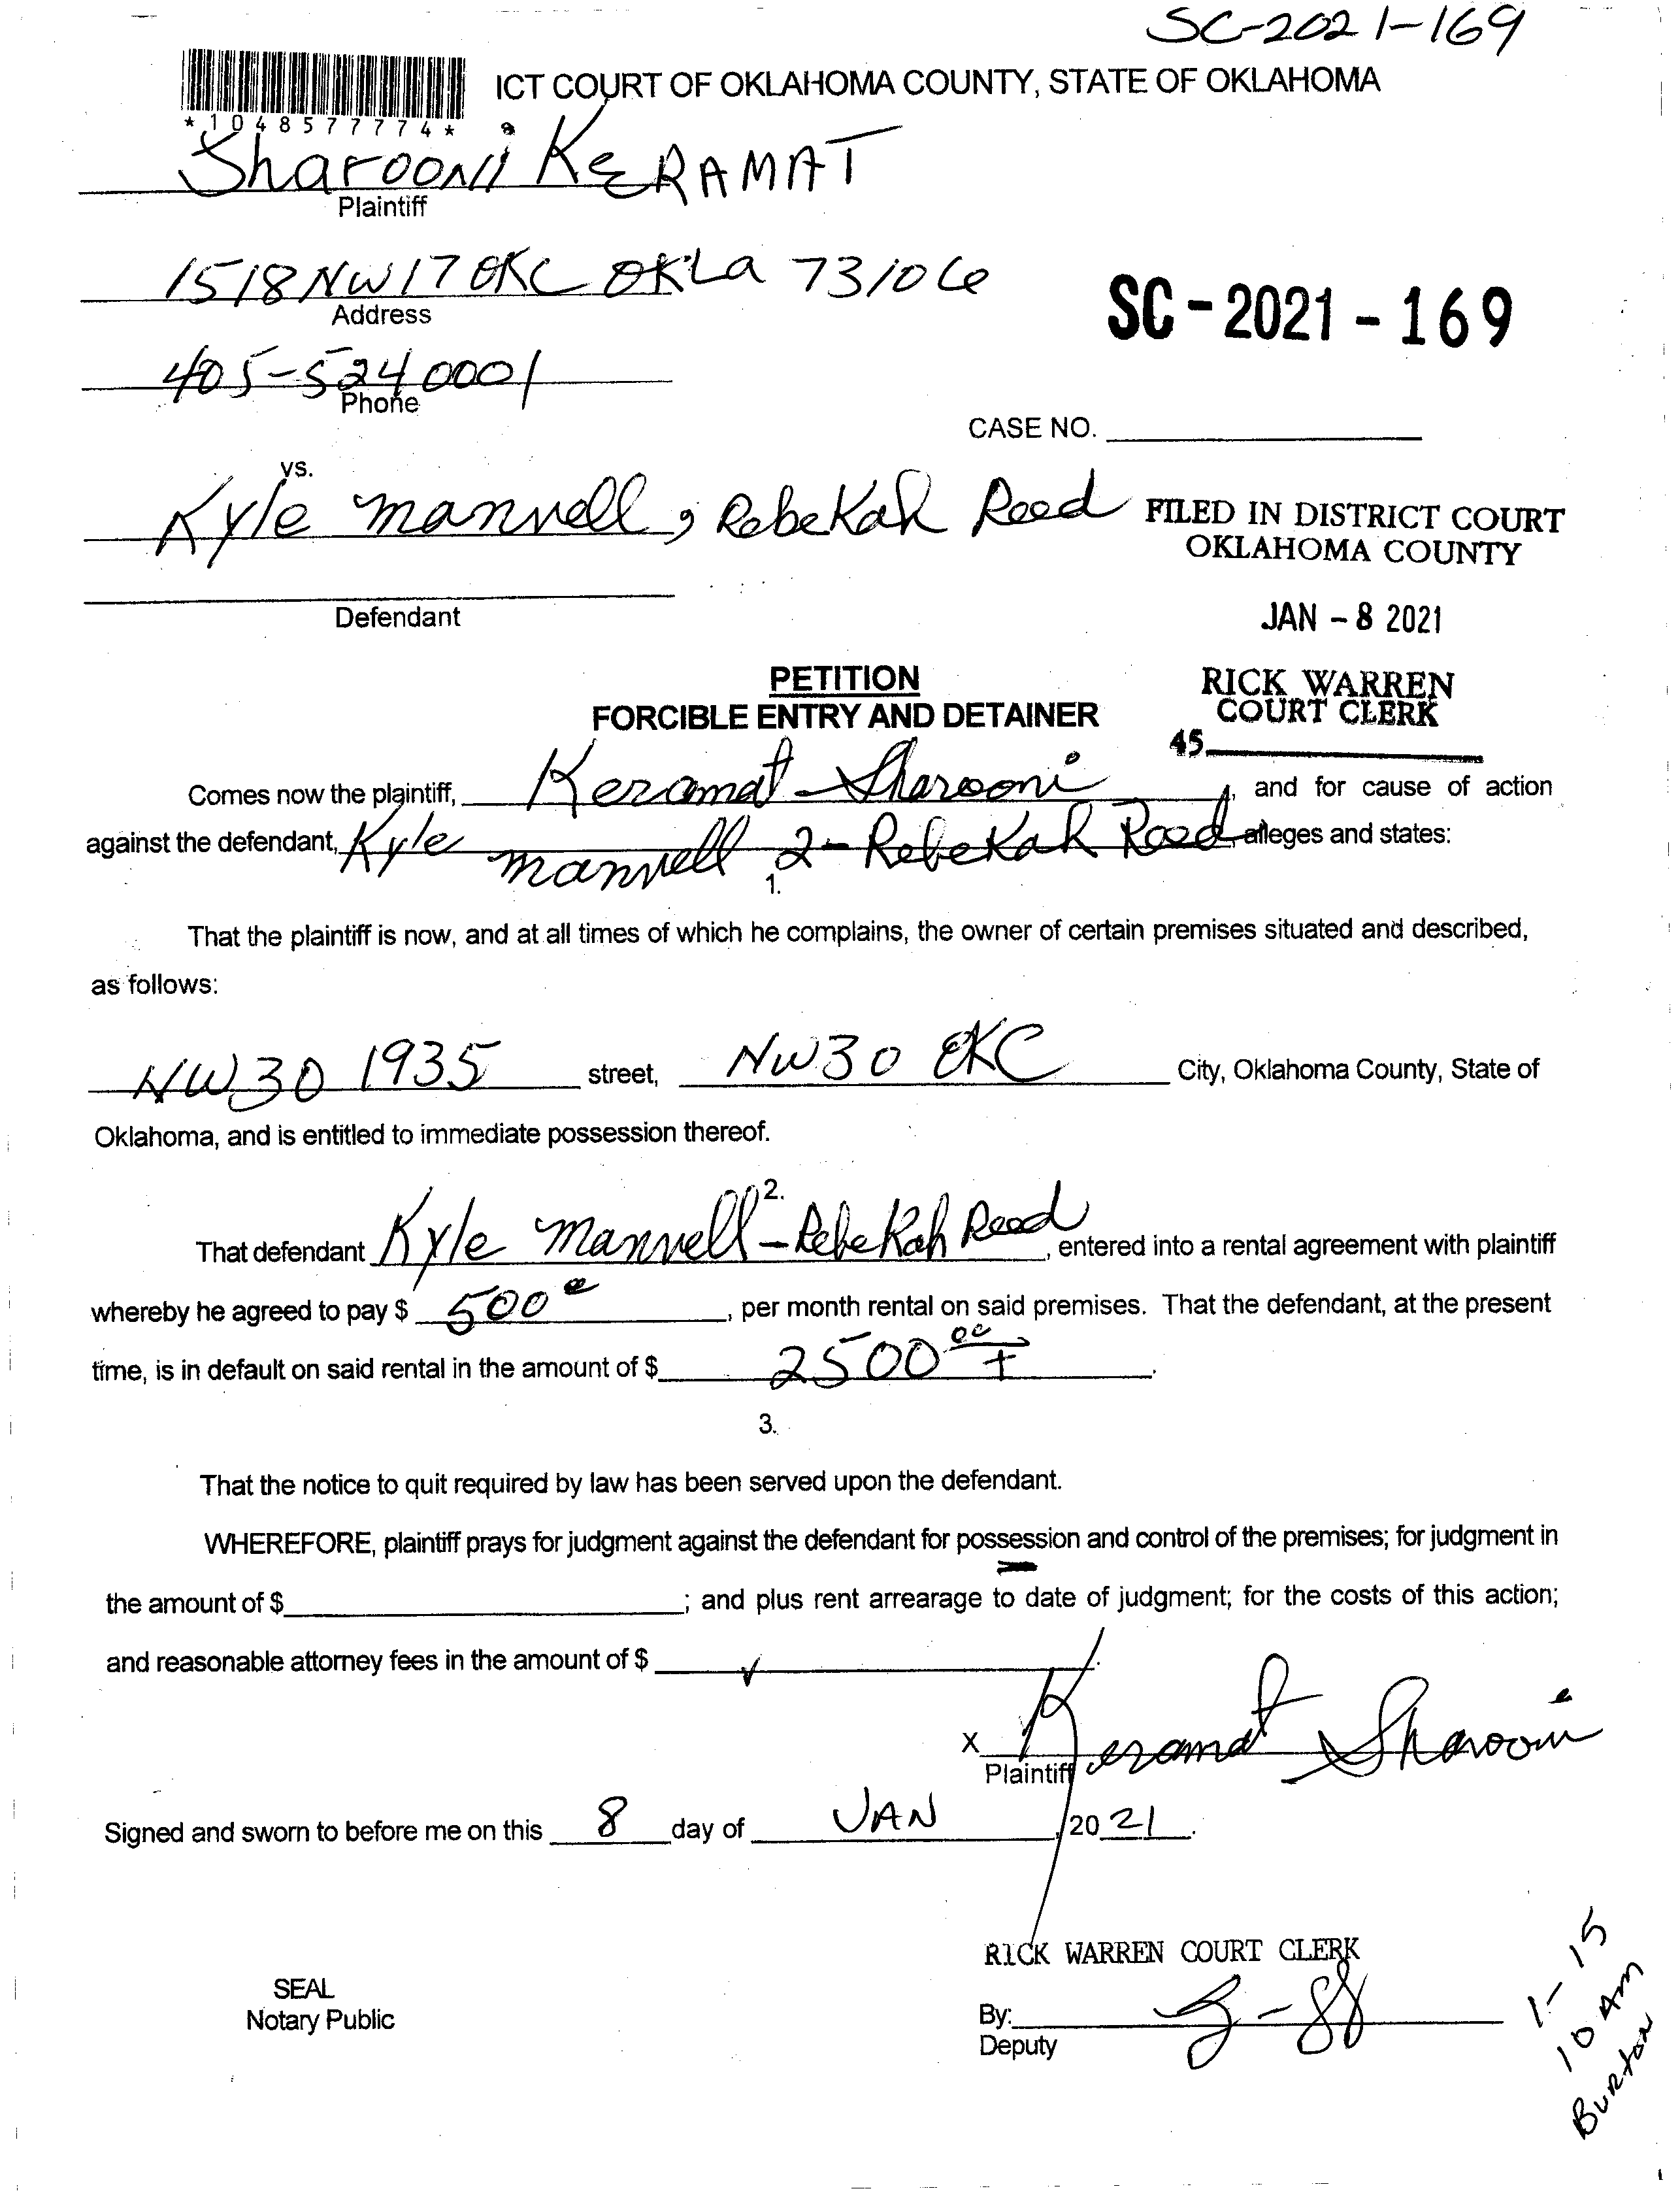 SC-2021-169
ICT COURT OF OKLAHOMA COUNTY, STATE OF OKLAHOMA
*1048577774*
Sharooni KERAMAT
Plaintiff
1518 NW 17 OKC OKLa 73106
Address
SC-2021-169
405-524 0001
Phone
CASE NO.
vs.
Kyle manvell, RebeKah Reed
FILED IN DISTRICT COURT
OKLAHOMA COUNTY
Defendant
JAN - 8 2021
PETITION
FORCIBLE ENTRY AND DETAINER
RICK WARREN
COURT CLERK
45
Comes now the plaintiff, Keramat Sharooni, and for cause of action
against the defendant, Kyle manvell 2- RebeKah Reed alleges and states:
1.
That the plaintiff is now, and at all times of which he complains, the owner of certain premises situated and described,
as follows:
NW 30 1935 street, NW 30 OKC City, Oklahoma County, State of
Oklahoma, and is entitled to immediate possession thereof.
2.
That defendant Kyle manvell - RebeKah Reed, entered into a rental agreement with plaintiff
whereby he agreed to pay $ 500, per month rental on said premises. That the defendant, at the present
time, is in default on said rental in the amount of $ 2500 00 +.
3.
That the notice to quit required by law has been served upon the defendant.
WHEREFORE, plaintiff prays for judgment against the defendant for possession and control of the premises; for judgment in
the amount of $ ; and plus rent arrearage to date of judgment; for the costs of this action;
and reasonable attorney fees in the amount of $ .
X Keramat Sharooni
Plaintiff
Signed and sworn to before me on this 8 day of JAN, 2021.
RICK WARREN COURT CLERK
SEAL
Notary Public
By:
Deputy
1-15
10 Am
Burton